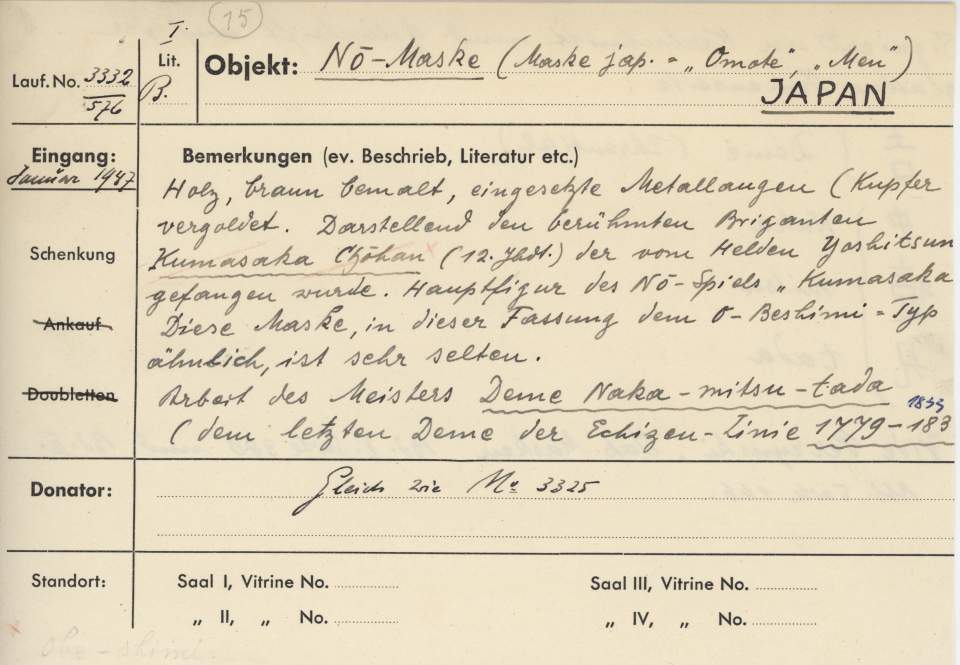 15
I.
Lauf. No. 3332
576
Lit.
B.
Objekt: Nō-Maske (Maske jap. = „Omote“, „Men“)
JAPAN
Eingang:
Januar 1947
Schenkung
Ankauf
Doubletten
Bemerkungen (ev. Beschrieb, Literatur etc.)
Holz, braun bemalt, eingesetzte Metallaugen (Kupfer
vergoldet. Darstellend den berühmten Briganten
Kumasaka Chōhan (12. Jhdt.) der vom Helden Yoshitsun
gefangen wurde. Hauptfigur des Nō-Spiels „Kumasaka
Diese Maske, in dieser Fassung dem O-Beshimi-Typ
ähnlich, ist sehr selten.
Arbeit des Meisters Deme Naka-mitsu-tada
1833
(dem letzten Deme der Echizen-Linie 1779-183
Donator: Gleich wie No 3325
Standort:
Saal I, Vitrine No.
„ II, „ No.
Saal III, Vitrine No.
„ IV, „ No.